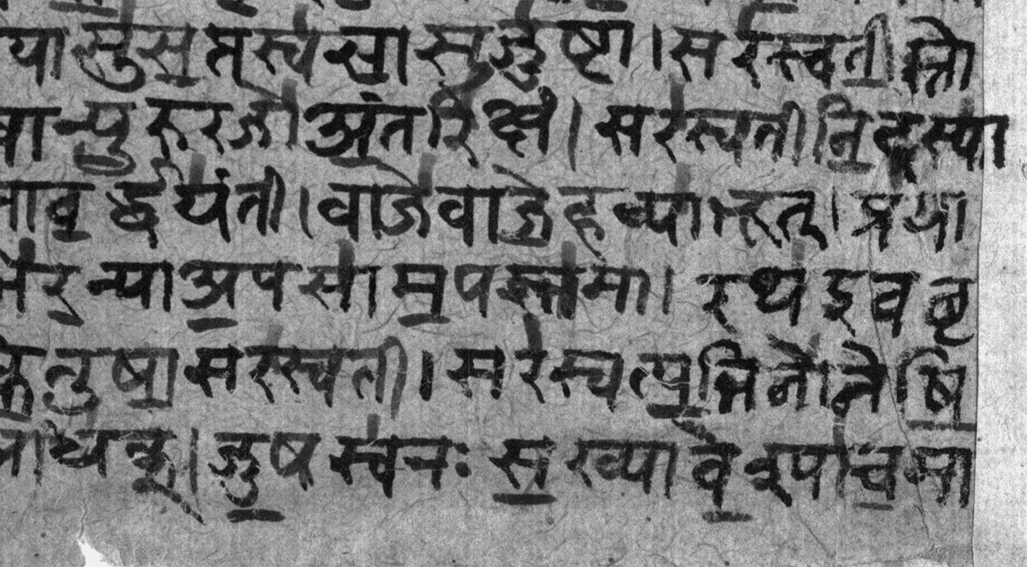 यासु॑स॒प्तस्व॑सा॒सुजु॑ष्टा।सर॑स्वती॒स्तो
वान्यु॒रुरजो॑अं॒तरि॑क्षं। सर॑स्वतीनि॒दस्पा
ताव॒र्द्धय॑ंती।वाजे॑वाजे॒हव्या॑भूत्। प्रया
भिर॒न्याअ॒पसा॑म॒पस्त॑मा। रथ॑इवबृ
कि॒तुषा॒सर॑स्वती।सर॑स्वत्य॒भिनो॑नेषि॒
आध॑क्।जु॒षस्व॑नः स॒ख्यावे॒श्या॑च॒मा